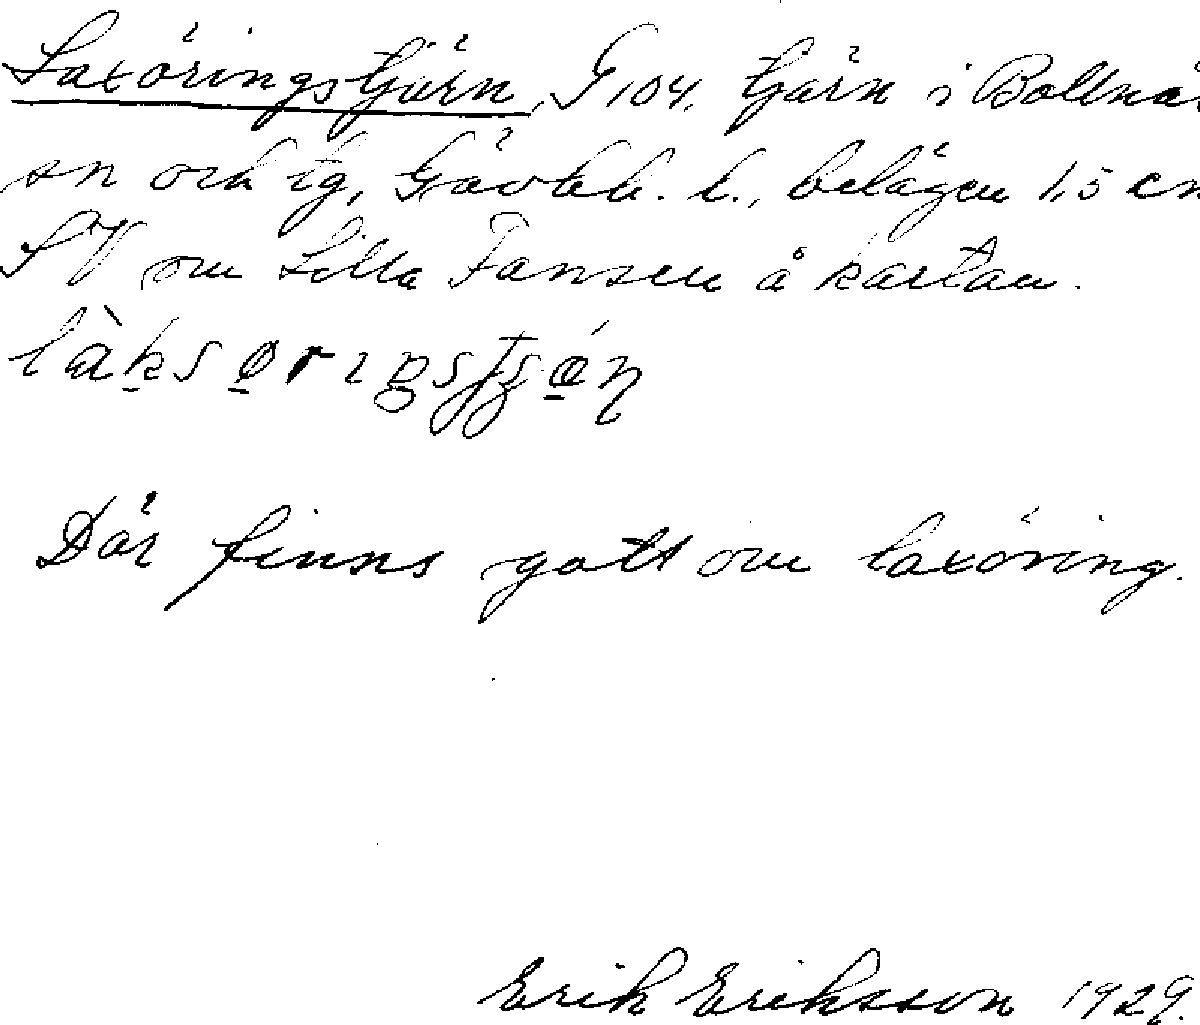 Laxöringstjärn, G 104. tjärn i Bollnäs
sn och tg, Gävleb. l., belägen 1,5 cm
SV om Lilla Fansen å kartan.
Där finns gott om laxöring.
Erik Eriksson 1929.